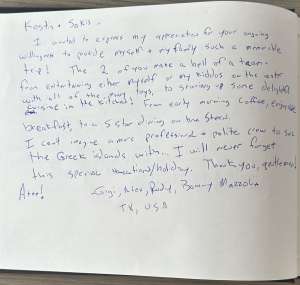 Kosta + Sakis -
I wanted to express my appreciation for your ongoing
willingness to provide myself + my family such a memorable
trip! The 2 of you make a hell of a team -
from entertaining either myself or my kiddos on the water
with all of the toys, to serving up some delightful
cuisine in the kitchen! From early morning coffee, enjoyable
breakfast, to a 5 star dining on board
I can't imagine a more professional + polite crew to sail
the Greek islands with... I will never forget
this special vacation/holiday. Thank you, gentlemen!
Gigi, Nico, Rudy,
TX, USA